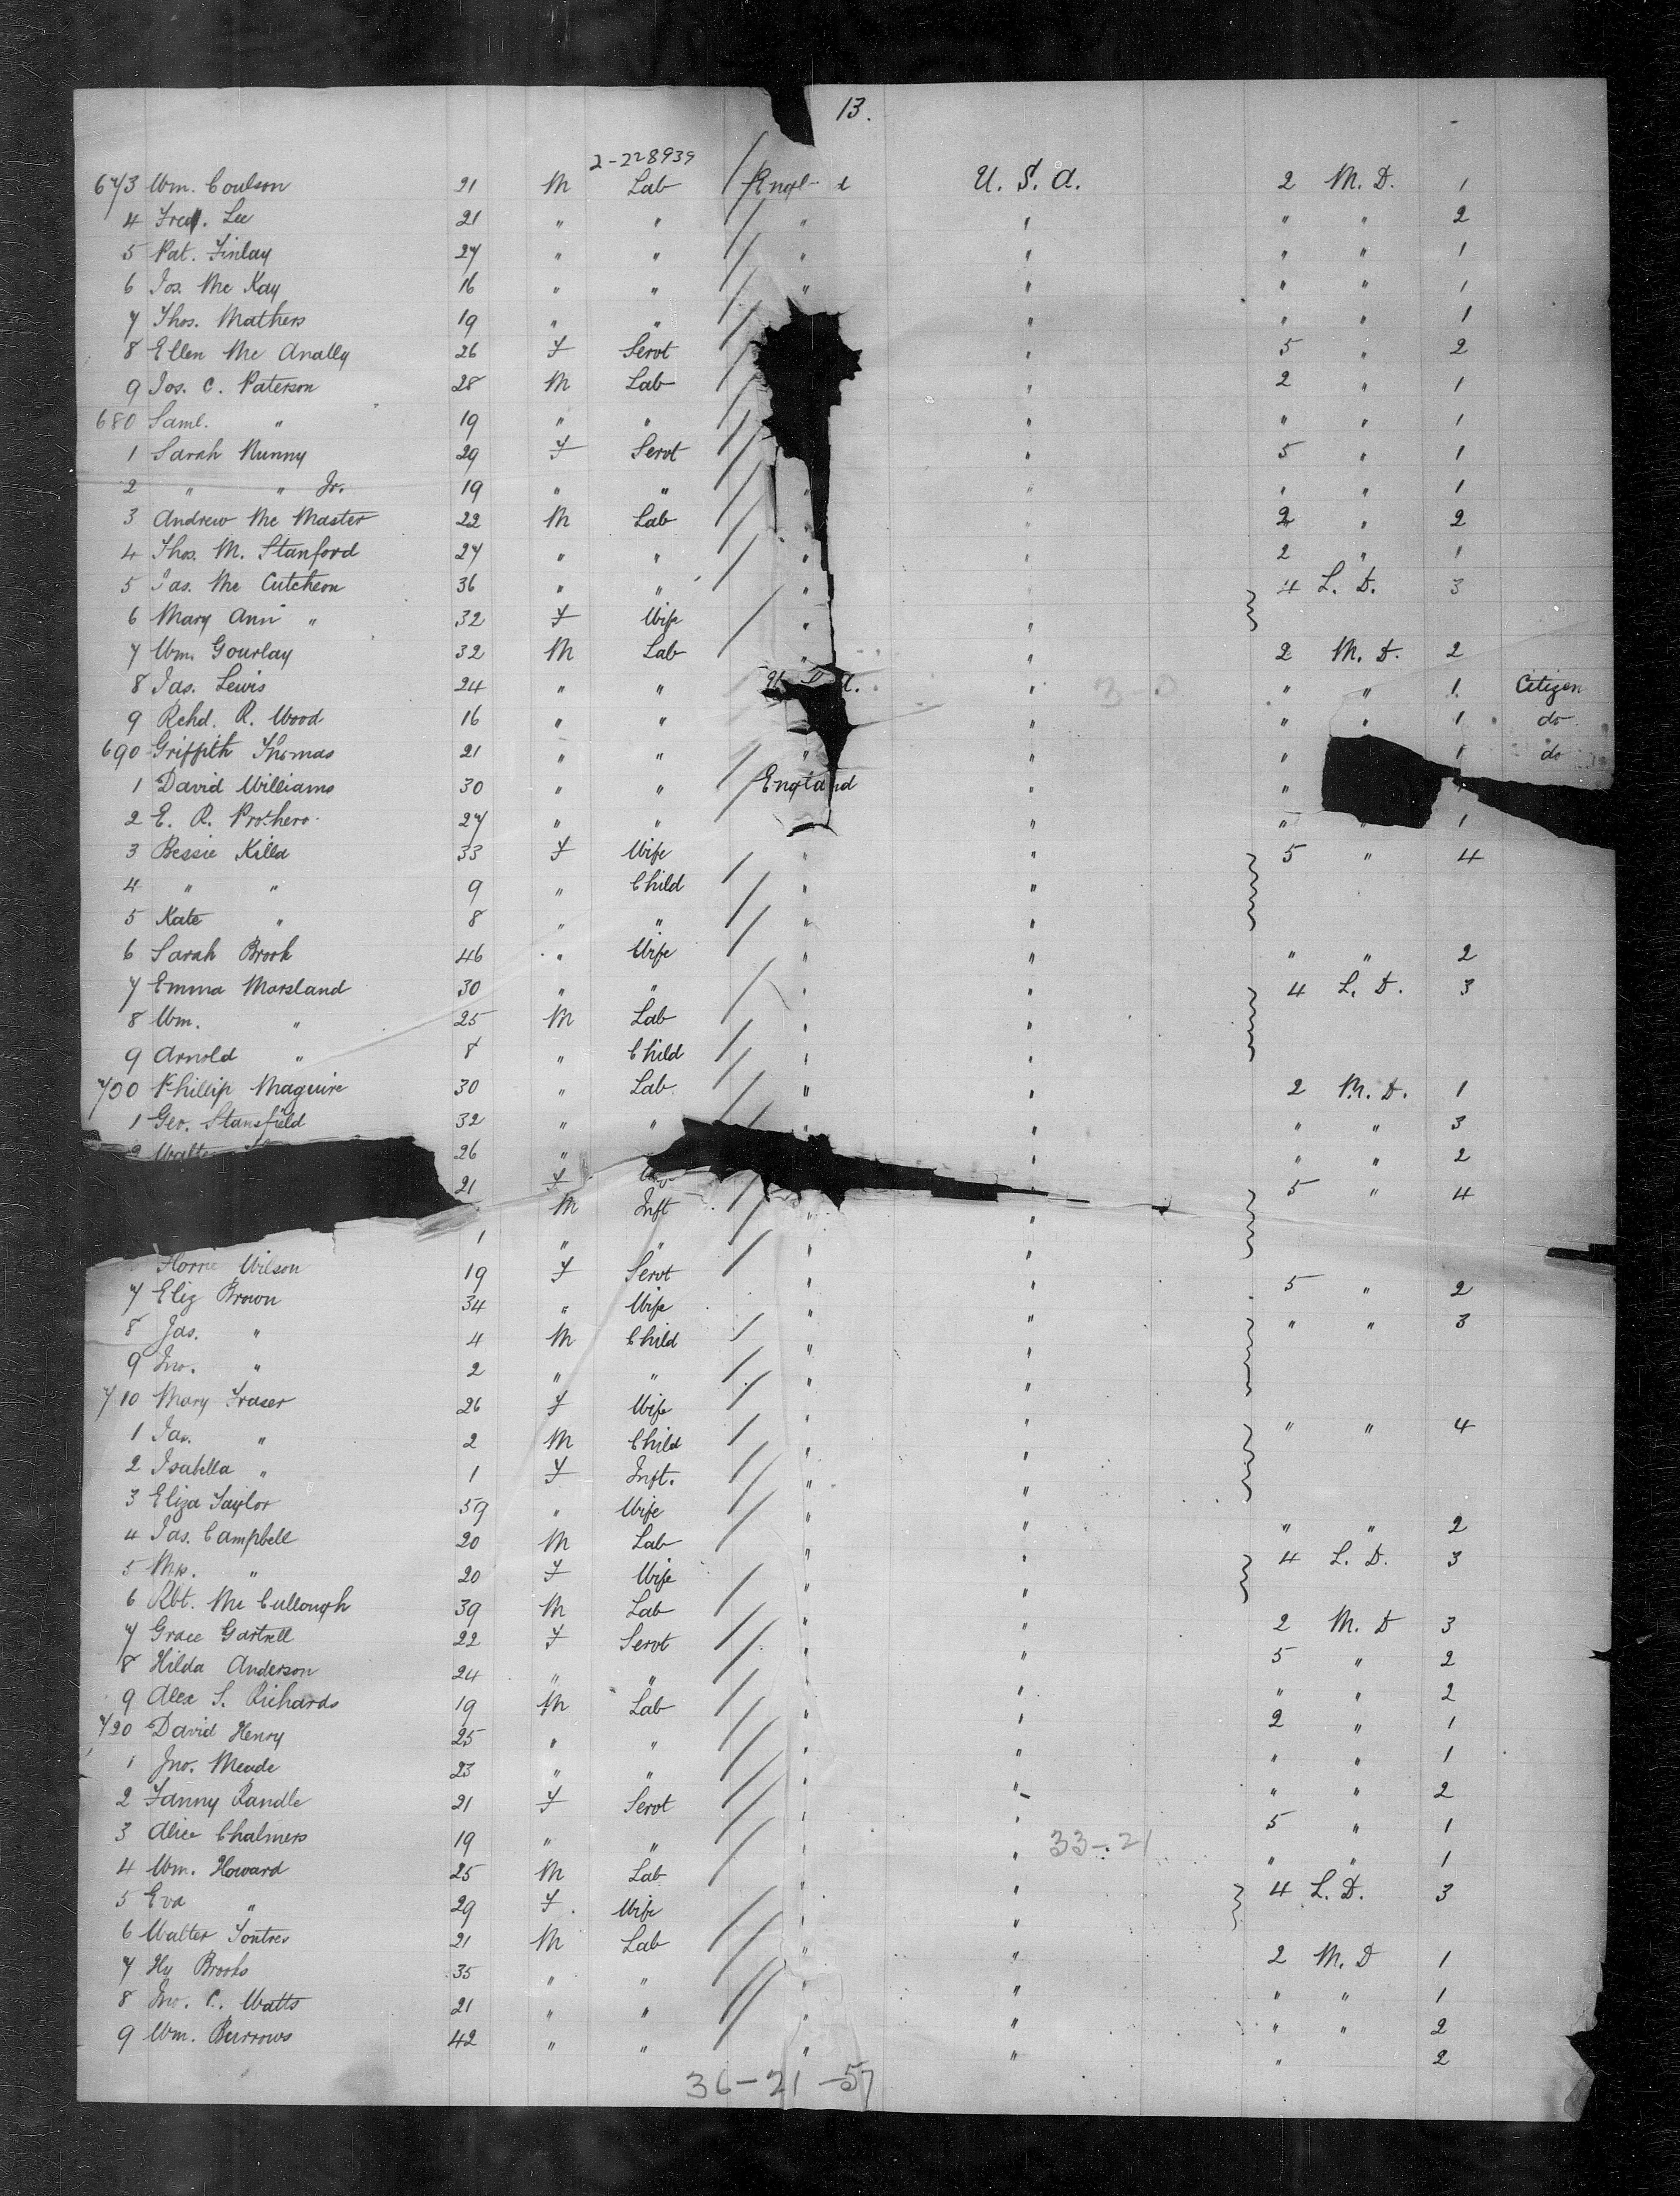 13.
2-228939
673 Wm. Coulson 21 M Lab Engl d U. S. A. 2 M. D. 1
4 Fred. Lee 21 " " " " " " 2
5 Pat. Finlay 27 " " " " " " 1
6 Jos. Mc Kay 16 " " " " " " 1
7 Thos. Mathers 19 " " " " " 1
8 Ellen Mc Anally 26 F Servt " 5 " 2
9 Jos. C. Paterson 28 M Lab " 2 " 1
680 Saml. " 19 " " " " " 1
1 Sarah Nunny 29 F Servt " 5 " 1
2 " " Jr. 19 " " " " " " 1
3 Andrew Mc Master 22 M Lab " " 2 " 2
4 Thos. M. Stanford 27 " " " " 2 " 1
5 Jas. Mc Cutcheon 36 " " " " 4 L. D. 3
6 Mary Ann " 32 F Wife " "
7 Wm. Gourlay 32 M Lab " " 2 M. D. 2
8 Jas. Lewis 24 " " " " " 1 Citizen
9 Rchd. R. Wood 16 " " " " " 1 do
690 Griffith Thomas 21 " " " " " 1 do
1 David Williams 30 " " England " " 1
2 E. R. Prothero 27 " " " " " 1
3 Bessie Killa 33 F Wife " " 5 " 4
4 " " 9 " Child " "
5 Kate " 8 " " " "
6 Sarah Brook 46 " Wife " " " " 2
7 Emma Marsland 30 " " " " 4 L. D. 3
8 Wm. " 25 M Lab " "
9 Arnold " 8 " Child " "
700 Phillip Maguire 30 " Lab " " 2 M. D. 1
1 Geo. Stansfield 32 " " " " " " 3
2 Walte 26 " " " " 2
21 F 5 " 4
M Inft " "
1 " " " "
Florrie Wilson 19 F Servt " " 5 " 2
7 Eliz Brown 34 " Wife " " " " 3
8 Jas. " 4 M Child " "
9 Jno. " 2 " " " "
710 Mary Fraser 26 F Wife " " " " 4
1 Jas. " 2 M Child " "
2 Isabella " 1 F Inft. " "
3 Eliza Taylor 59 " Wife " " " " 2
4 Jas. Campbell 20 M Lab " " 4 L. D. 3
5 Mrs. " 20 F Wife " "
6 Rbt. Mc Cullough 39 M Lab " " 2 M. D 3
7 Grace Gartrell 22 F Servt " " 5 " 2
8 Hilda Anderson 24 " " " " " " 2
9 Alex S. Richards 19 M Lab " " 2 " 1
720 David Henry 25 " " " " " " 1
1 Jno. Meade 23 " " " " " " 2
2 Fanny Randle 21 F Servt " " 5 " 1
3 Alice Chalmers 19 " " " " " " 1
33-21
4 Wm. Howard 25 M Lab " " 4 L. D. 3
5 Eva " 29 F Wife " "
6 Walter 21 M Lab " " 2 M. D 1
7 Hy Brooks 35 " " " " " " 1
8 Jno. C. Watts 21 " " " " " " 2
9 Wm. Burrows 42 " " " " " 2
36-21-57